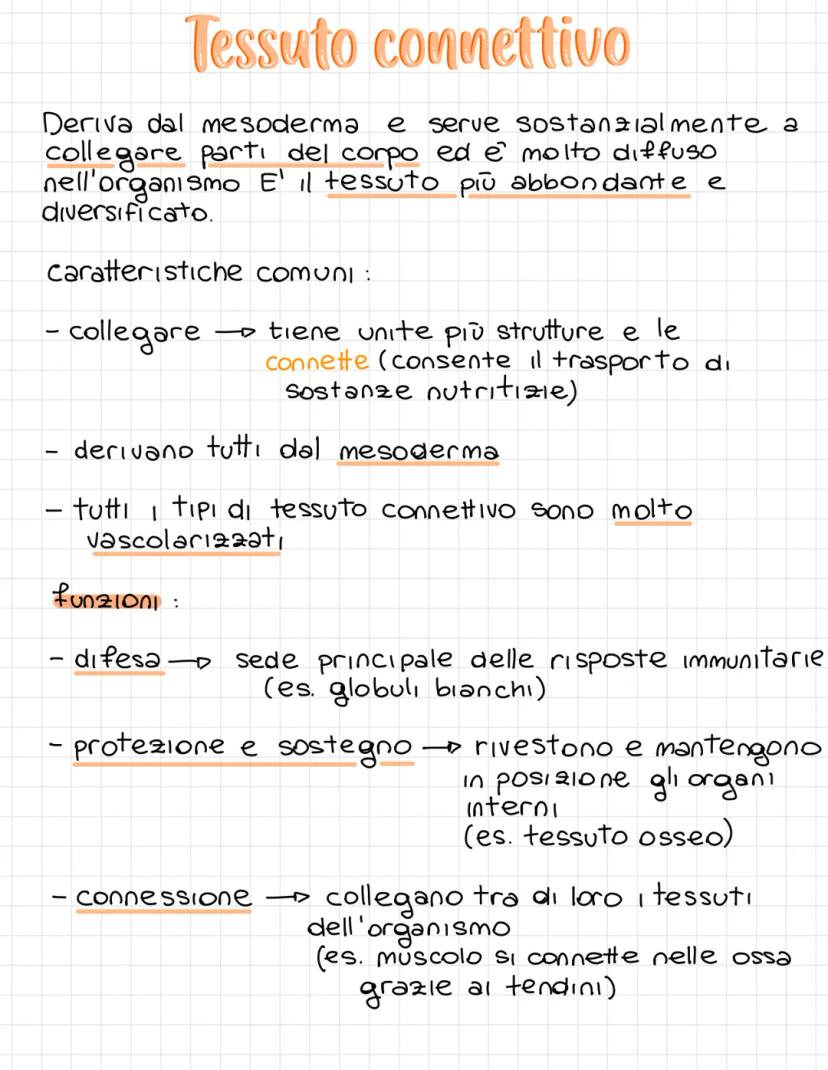 Tessuto connettivo
Deriva dal mesoderma e serve sostanzialmente a
collegare parti del corpo ed è molto diffuso
nell'organismo E' il tessuto più abbondante e
diversificato.
caratteristiche comuni :
- collegare → tiene unite più strutture e le
connette (consente il trasporto di
sostanze nutritizie)
- derivano tutti dal mesoderma
- tutti i tipi di tessuto connettivo sono molto
vascolarizzati
funzioni :
- difesa → sede principale delle risposte immunitarie
(es. globuli bianchi)
- protezione e sostegno → rivestono e mantengono
in posizione gli organi
interni
(es. tessuto osseo)
- connessione → collegano tra di loro i tessuti
dell'organismo
(es. muscolo si connette nelle ossa
grazie ai tendini)